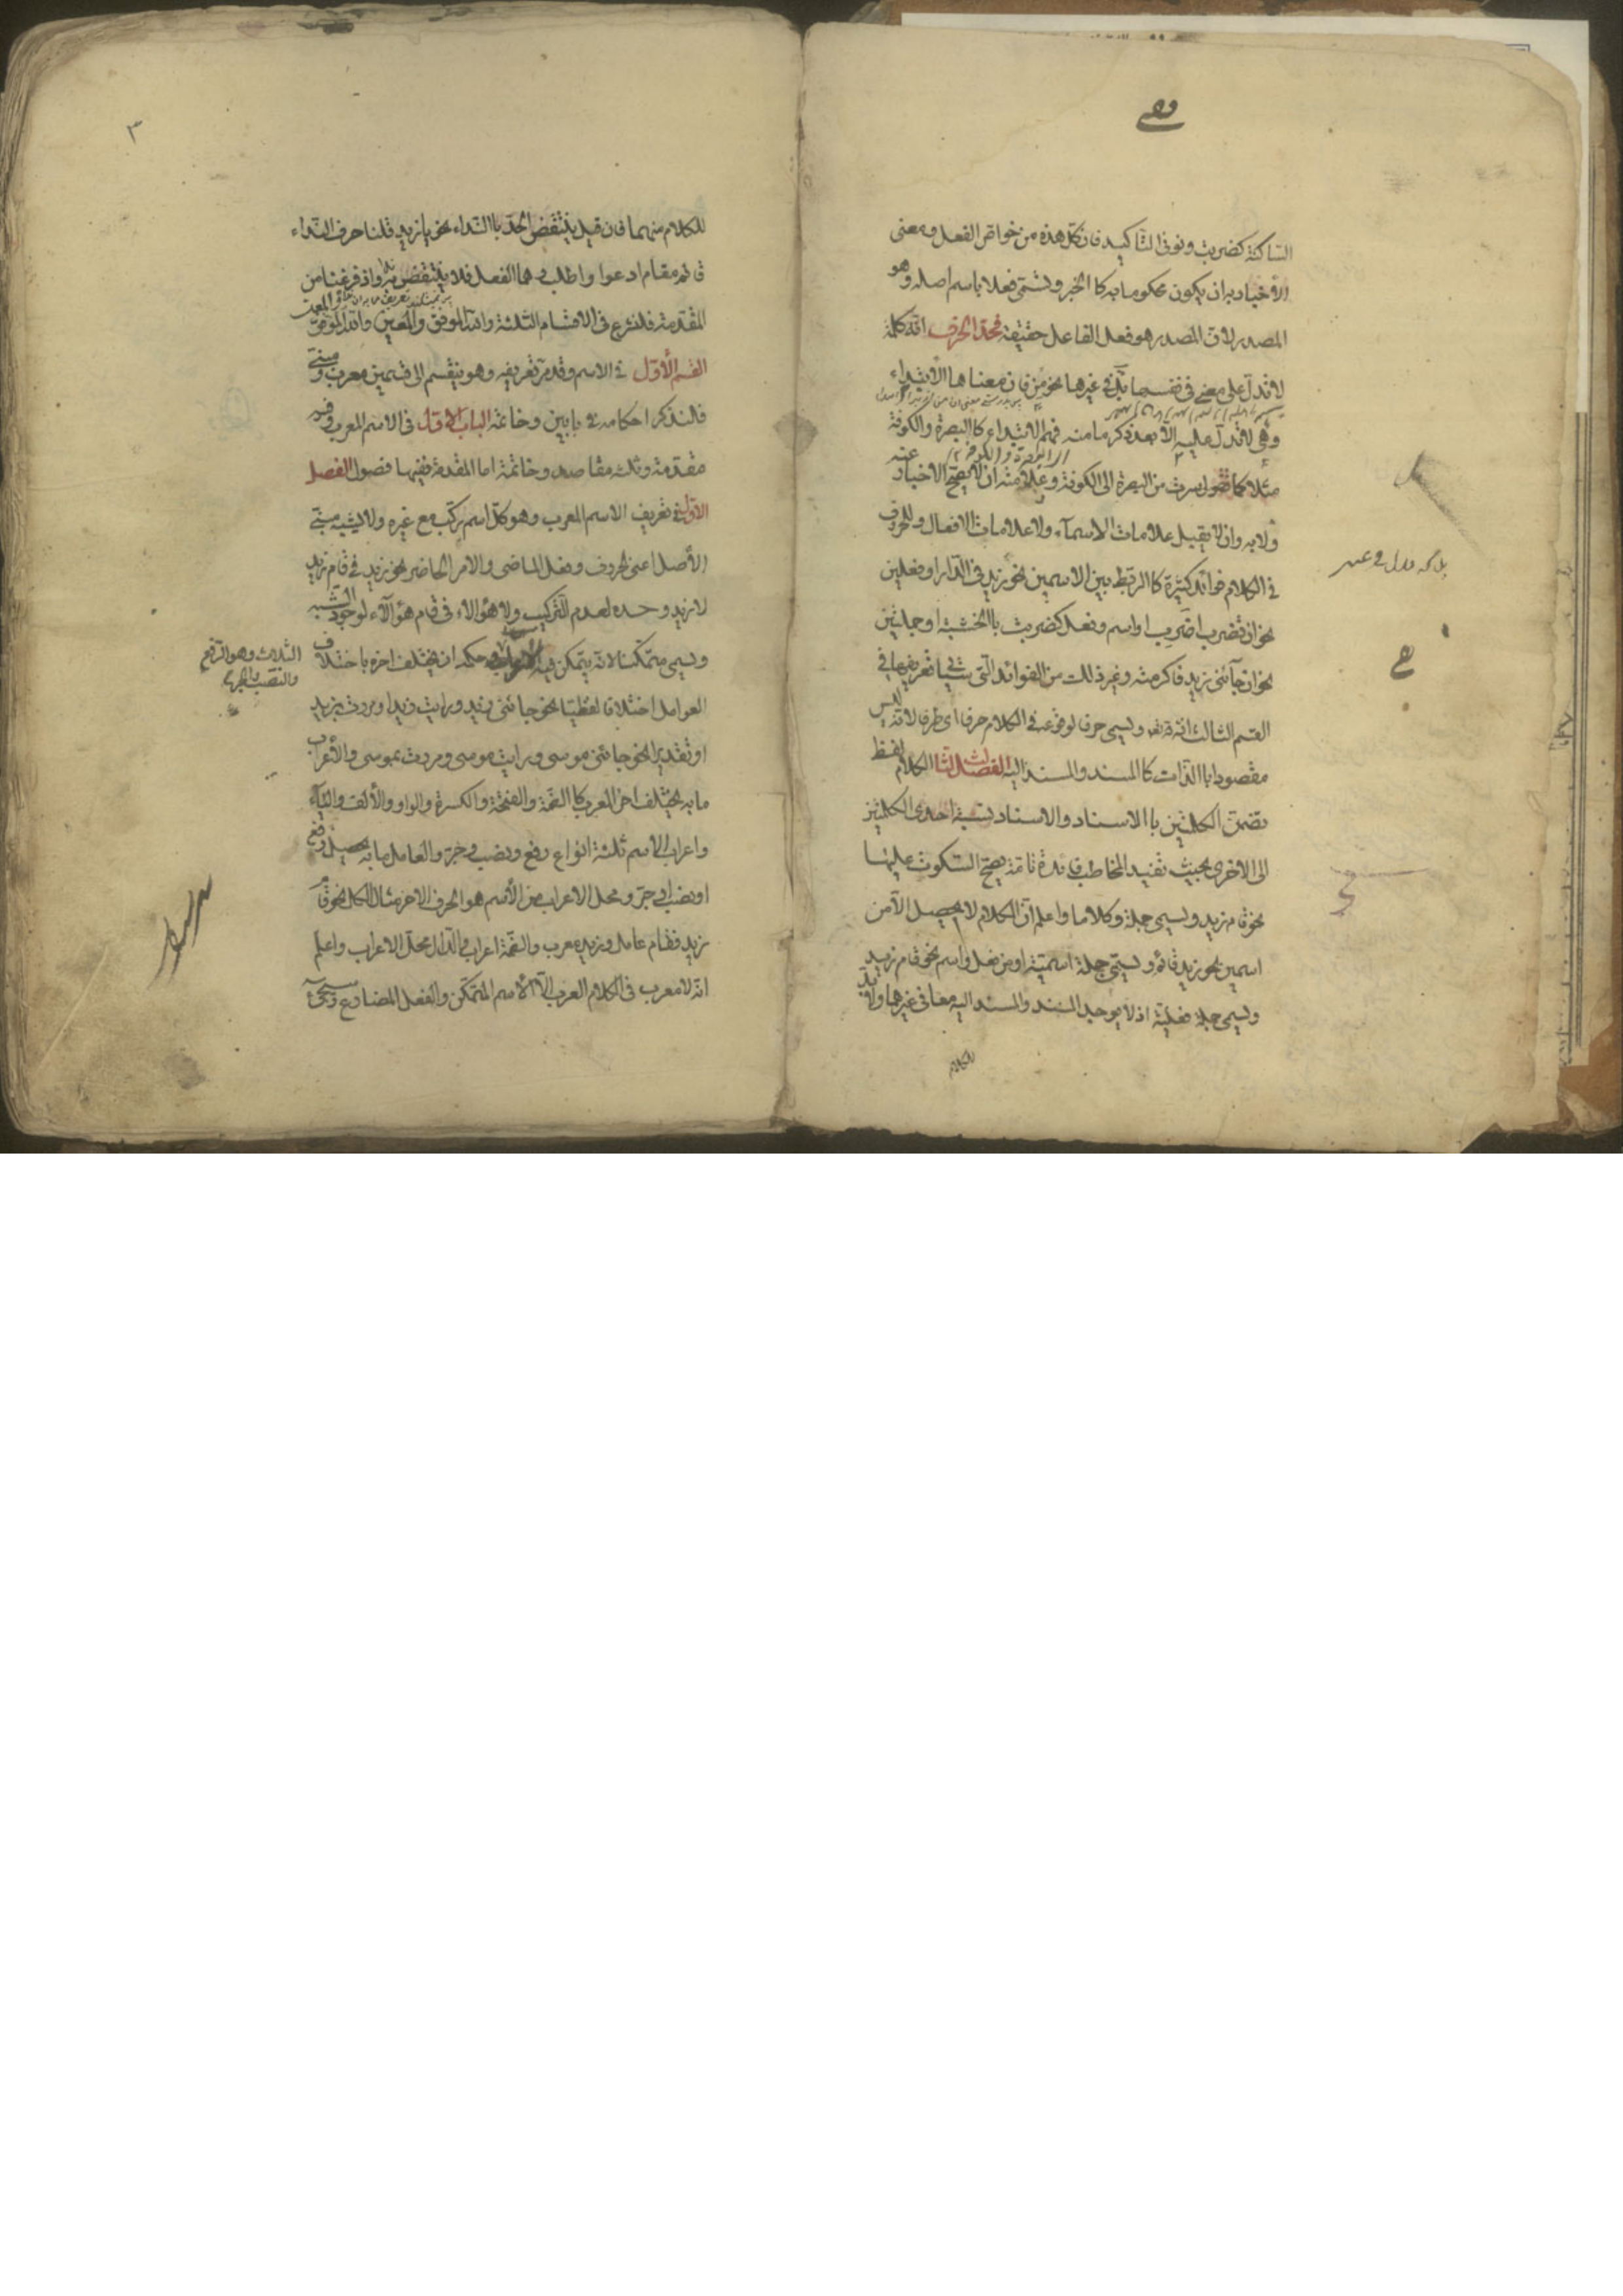 الساكنة كضربت ونونى التاكيد فان كل هذه من خواص الفعل ومعنى
الاخبار به ان يكون محكوما به كا الخبر ويسمى فعلا باسم اصله وهو
المصدر لان المصدر هو فعل الفاعل حقيقة فحد الحرف انه كلمة
لا تدل على معنى فى نفسها بل فى غيرها نحو من فان معناها الابتداء
وهى لا تدل عليه الا بعد ذكر ما منه فهم الابتداء كا البصرة والكوفة
مثلا كما تقول سرت من البصرة الى الكوفة وعلامته ان لا يصح الاخبار عنه
ولا به وان لا يقبل علامات الاسماء ولا علامات الافعال وللحروف
فى الكلام فوائد كثيرة كا الربط بين الاسمين نحو زيد فى الدار او فعلين
نحو ان تضرب اضرب او اسم وفعل كضربت باالخشبة او جملتين
نحو ان جآئنى زيد فاكرمته وغير ذلك من الفوائد التى تعريفها فى
القسم الثالث ان ويسمى حرفا لوقوعه فى الكلام حرفا اى طرفا لانه ليس
مقصودا باالذات كا المسند والمسند اليه الفصل الثالث الكلام لفظ
تضمن الكلمتين باالاسناد والاسناد نسبة احدى الكلمتين
الى الاخرى بحيث تفيد المخاطب فائدة تامة يصح السكوت عليها
نحو قام زيد ويسمى جملة وكلاما واعلم ان الكلام لا يحصل الا من
اسمين نحو زيد قائم ويسمى جملة اسمية او من فعل واسم نحو قام زيد
ويسمى جملة فعلية اذ لا يوجد المسند والمسند اليه معا فى غيرهما ولا بد
للكلام
٣
للكلام منهما فان قيل ينتقض الحد باالنداء نحو يا زيد قلنا حرف النداء
قائم مقام ادعوا واطلب وهما الفعل فلا ينتقض واذ فرغنا من
المقدمة فلنشرع فى الاقسام الثلثة والله الموفق والمعين
القسم الأول فى الاسم وقد مر تعريفه وهو ينقسم الى قسمين معرب ومبنى
فالنذكر احكامه فى بابين وخاتمة الباب الاول فى الاسم المعرب وفيه
مقدمة وثلثه مقاصد وخاتمة اما المقدمة ففيها فصول الفصل
الاول فى تعريف الاسم المعرب وهو كل اسم ركب مع غيره ولا يشبه مبنى
الأصل اعنى الحروف وفعل الماضى والامر الحاضر نحو زيد فى قام زيد
لا زيد وحده لعدم التركيب ولا هؤلاء فى قام هؤلآء لوجود الشبه
ويسمى متمكنا لانه يتمكن فيه حكمه ان يختلف اخره باختلاف
الثلاث وهو الرفع
والنصب والجر
العوامل اختلافا لفظيا نحو جائنى زيد ورايت زيدا ومررت بزيد
او تقديرا نحو جائنى موسى ورايت موسى ومررت بموسى والأعراب
ما به يختلف اخر المعرب كا الضمة والفتحة والكسرة والواو والألف والياء
واعراب الاسم ثلثة انواع رفع ونصب وجر والعامل ما به يحصل رفع
او نصب او جر ومحل الاعراب من الأسم هو الحرف الاخر مثال الكل نحو قام
زيد فقام عامل وزيد معرب والضمة اعراب والدال محل الاعراب واعلم
انه لا معرب فى الكلام العرب الا الأسم المتمكن والفعل المضارع وسيجئ